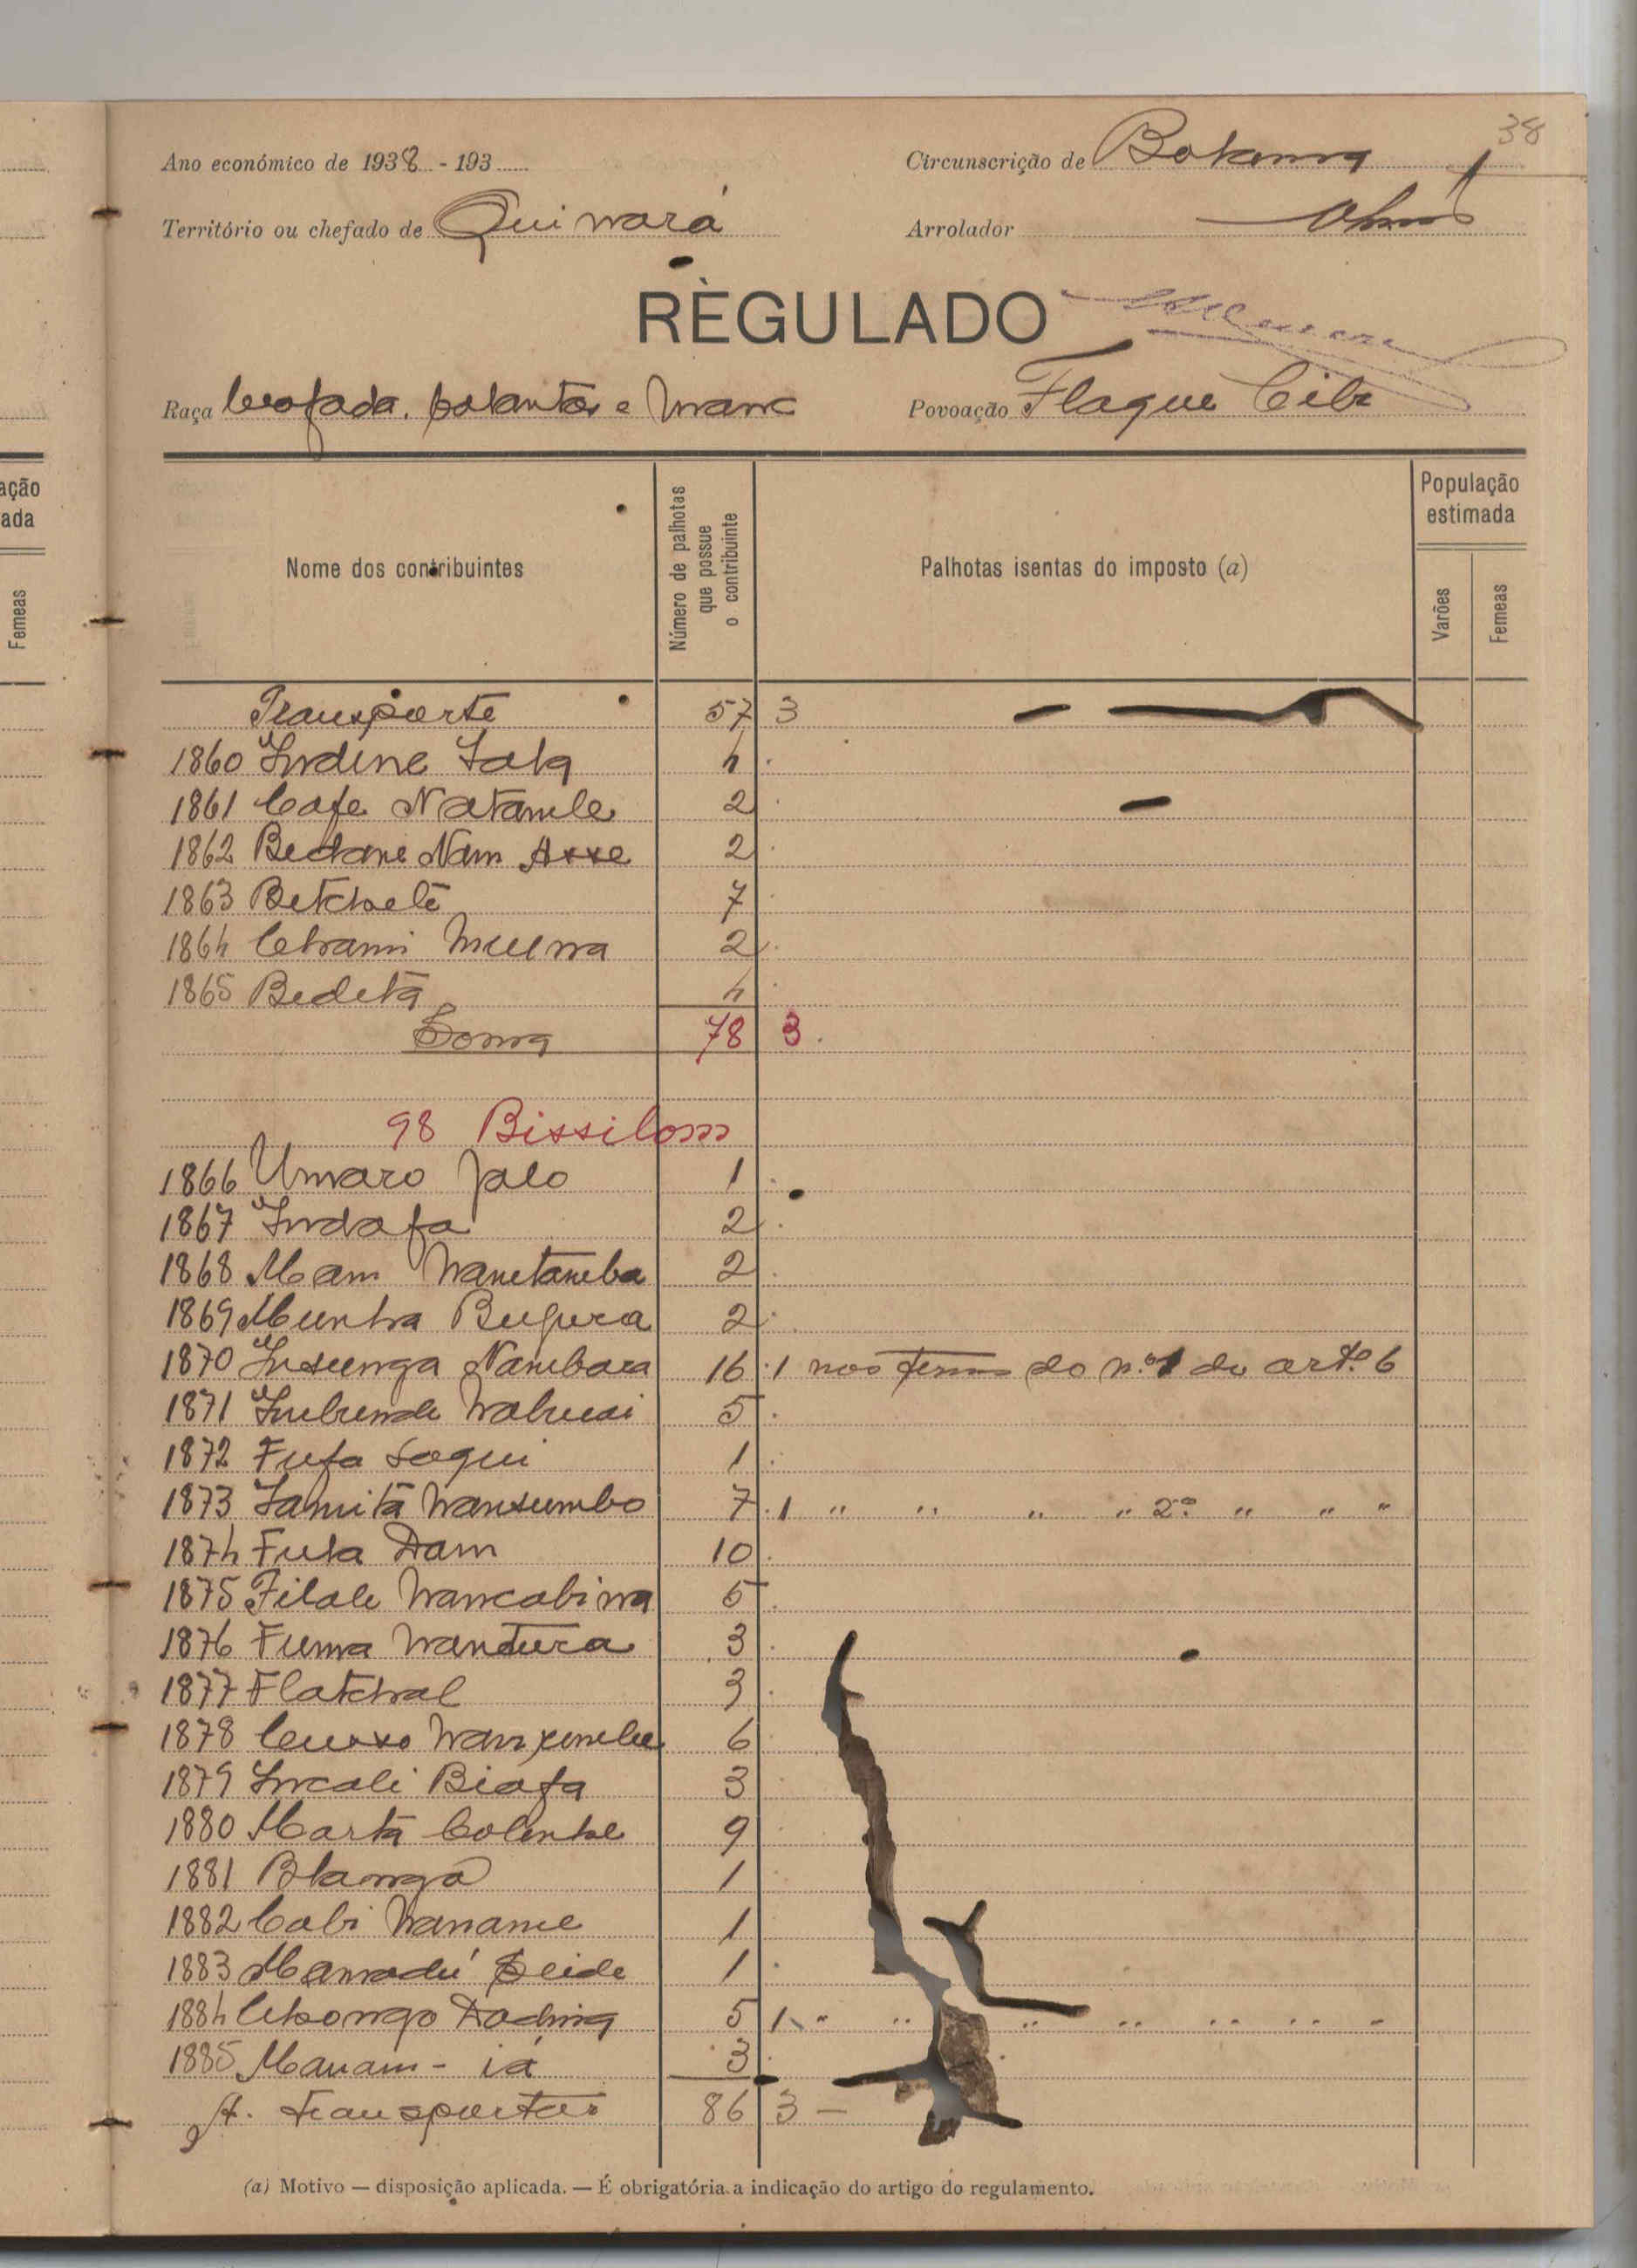 38
Ano económico de 1938 - 193
Circunscrição de Bolama
Território ou chefado de Quinará
Arrolador
RÈGULADO
Raça beafada, balantas e
Povoação Flaque Cibe
Nome dos contribuintes
Número de palhotas que possue o contribuinte
Palhotas isentas do imposto (a)
População estimada
Varões
Femeas
ação
ada
Femeas
Transporte 57 3
1860 Indine Lala 4
1861 Cafe Natamle 2
1862 Bedane Nam Asse 2
1863 Betchelé 7
1864 2
1865 Bedetã 4
Soma 78 3
98 Bissilom
1866 Umaro Jalo 1
1867 Indafa 2
1868 Mam Nantamba 2
1869 Munha Bufura 2
1870 Insunga Nambara 16 1 nos termos do n.º 1 do art.º 6
1871 5
1872 Fufa Soqui 1
1873 Nansumbo 7 1 " " " " 2º " " "
1874 Futa Dam 10
1875 Filale Nancabina 5
1876 Fuma Nantura 3
1877 Flatchal 3
1878 Cusso 6
1879 Incali Biafa 3
1880 Martã 9
1881 Blanga 1
1882 Cabi Naname 1
1883 Mamadú Seide 1
1884 5 1 " " " " " " "
1885 Manam - iá 3
A transportar 86 3 —
(a) Motivo — disposição aplicada. — É obrigatória a indicação do artigo do regulamento.